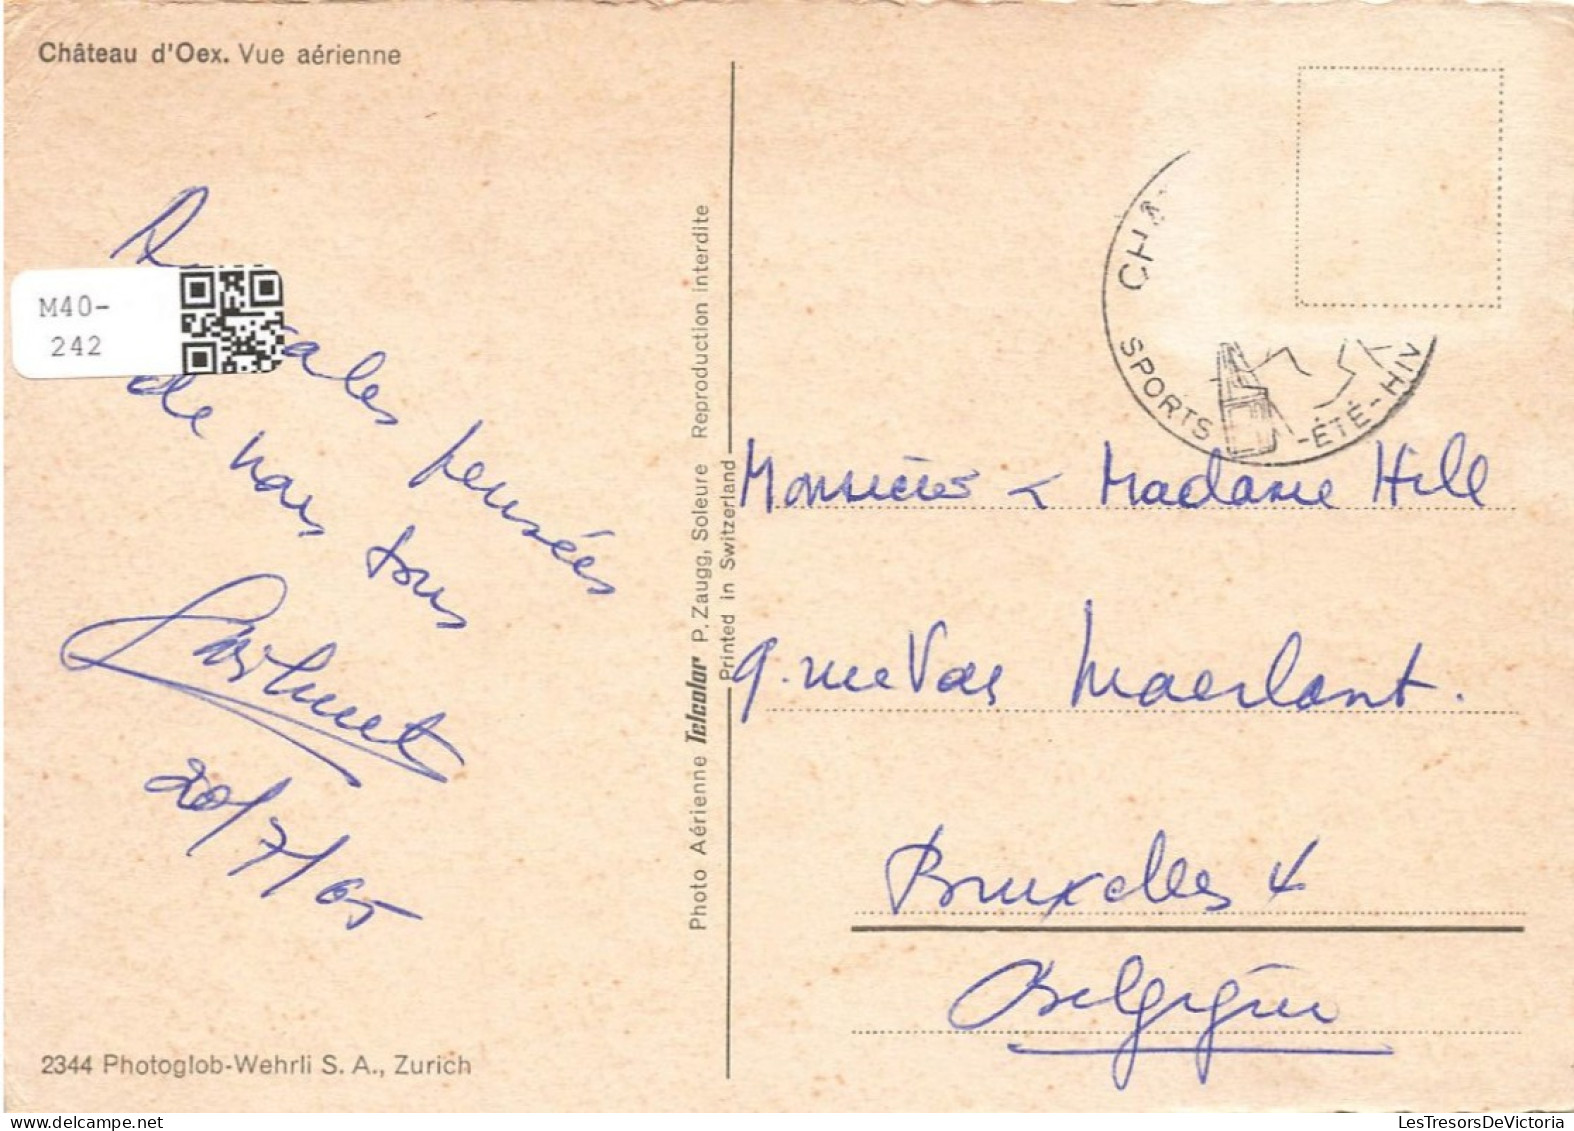 Château d'Oex. Vue aérienne
M40-
242
ales pensées
de nous tous
20/7/65
2344 Photoglob-Wehrli S. A., Zurich
Photo Aérienne Telcolor P. Zaugg, Soleure Reproduction interdite
Printed in Switzerland
CHA
SPORTS -ÉTÉ-HIV
Monsieur & Madame Hill
9. rue Van Maerlant.
Bruxelles 4
Belgique
LesTresorsDeVictoria.com